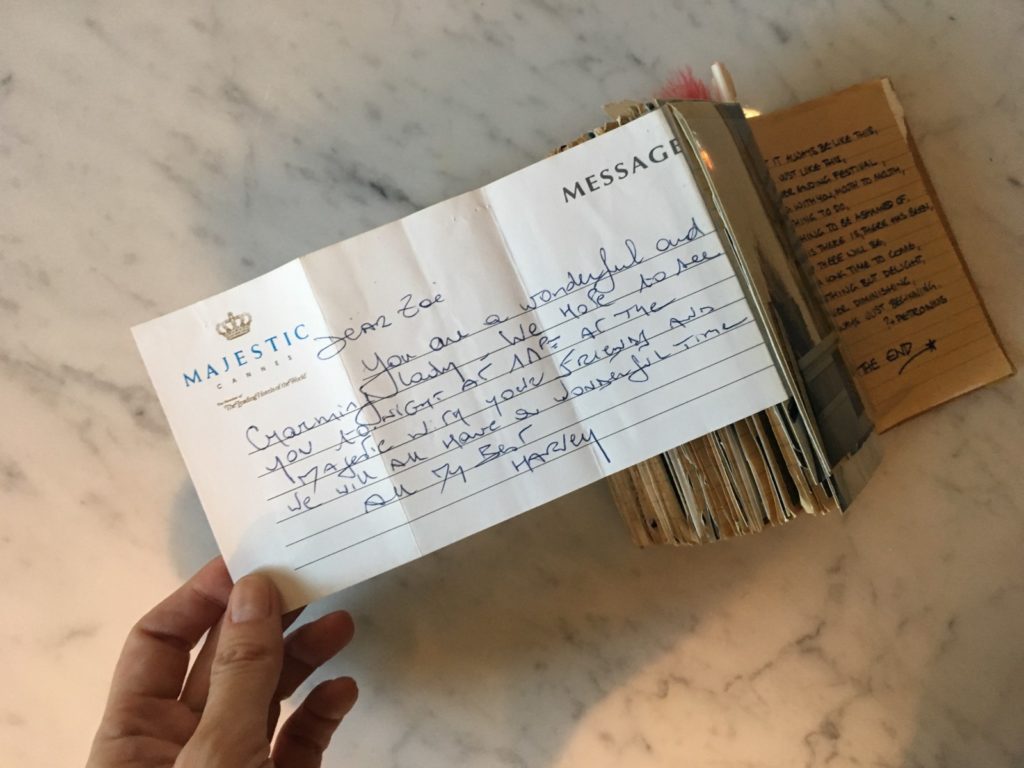 MESSAGE
MAJESTIC
CANNES
The Leading Hotels of the World
DEAR Zoë
You are a wonderful and
Charming lady - We HOPE to see
you toNIGHT AT AT THE
Majestic With your FRIENDS AND
We will All Have a wonderful TIME
All My BEST
HARVEY
IT ALWAYS BE LIKE THIS,
UST LIKE THIS,
ER ENDING FESTIVAL,
WITH YOU, MOUTH TO MOUTH,
HING TO DO,
HING TO BE ASHAMED OF.
S THERE IS, THERE HAS BEEN,
THERE WILL BE,
A LONG TIME TO COME.
THING BUT DELIGHT,
VER DIMINISHING,
WAYS JUST BEGINNING.
PETRONIUS
THE END